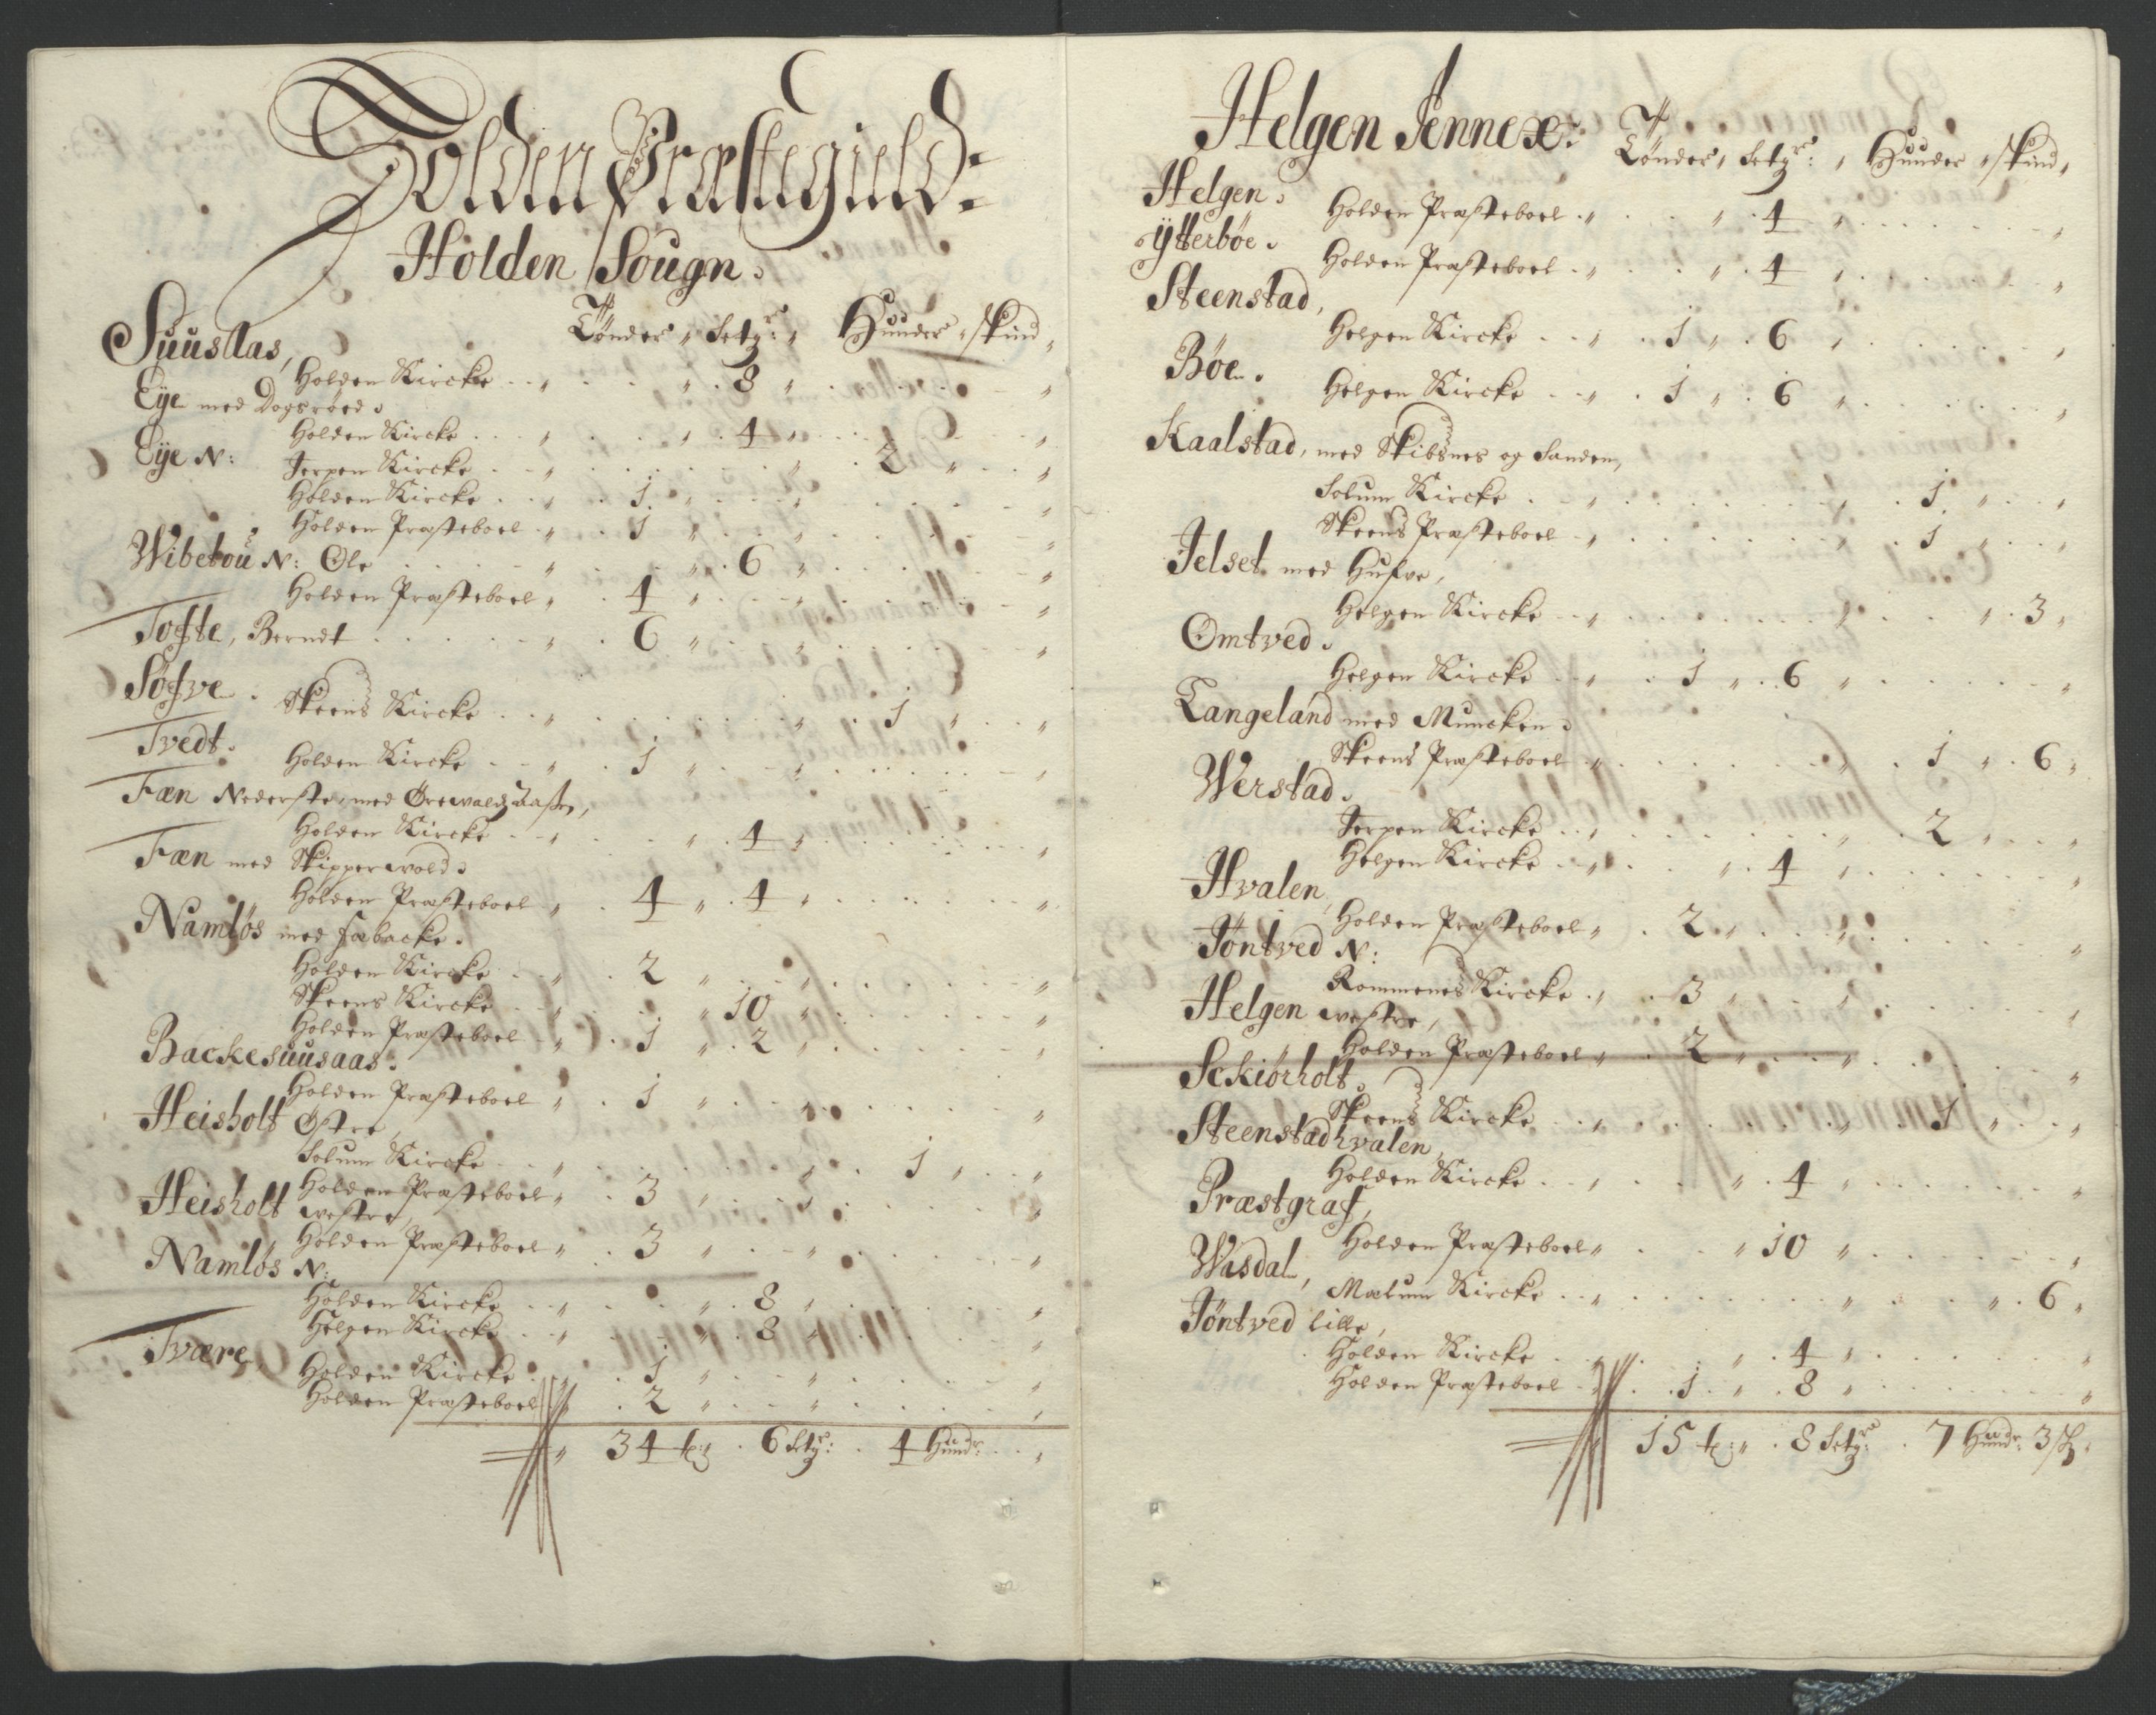 Holden Præstegield:
Holden Sougn.
Tönder, Setgr: Hunder, skind,
Suuslas,
Holden Kircke 8
Eÿe med Dogsröed.
Holden Kircke 4
Eÿe N: Jerpen Kircke 2
Holden Kircke 1
Holden Præsteboel 1
Wibetou N: Ole 6
Holden Præsteboel 4
Tofte, Berndt 6
Söfve.
Skeens Kircke 1
Tvedt.
Holden Kircke 1
Fæn Nederste, med
Holden Kircke 4
Fæn med Skipperwold.
Holden Præsteboel 4 4
Namlös med fabacke.
Holden Kircke 2
Skeens Kircke 10
Holden Præsteboel 1 2
Backesuusaas.
Holden Præsteboel 1
Heisholt Östre,
Solum Kircke 1
Holden Præsteboel 3
Heisholt westre,
Holden Præsteboel 3
Namlös N:
Holden Kircke 8
Helgen Kircke 8
Tvære,
Holden Kircke 1
Holden Præsteboel 2
34 t: 6 Setgr: 4 Hundr:
Helgen Annex:
Tönder, Setgr: Hunder, skind,
Helgen.
Holden Præsteboel 4
Ÿtterböe.
Holden Præsteboel 4
Steenstad,
Helgen Kircke 1 6
Böe.
Helgen Kircke 1 6
Kaalstad, med Skibsnes og Sanden,
Solum Kircke 1
Skeens Præsteboel 1
Jelset med Hufve,
Helgen Kircke 3
Omtved.
Helgen Kircke 1 6
Langeland med Muncken.
Skeens Præsteboel 1 6
Werstad.
Jerpen Kircke 2
Helgen Kircke 4
Hvalen,
Holden Præsteboel 2
Töntved N:
Rommenes Kircke 3
Helgen westre,
Holden Præsteboel 2
Sckiörholt.
Skeens Kircke 1
Steenstadhvalen,
Holden Kircke 4
Præstgraf,
Holden Præsteboel 10
Wasdal,
Mælum Kircke 6
Töntved lille,
Holden Kircke 4
Holden Præsteboel 1 8
15 t: 8 Setgr: 7 Hundr: 3 sk: